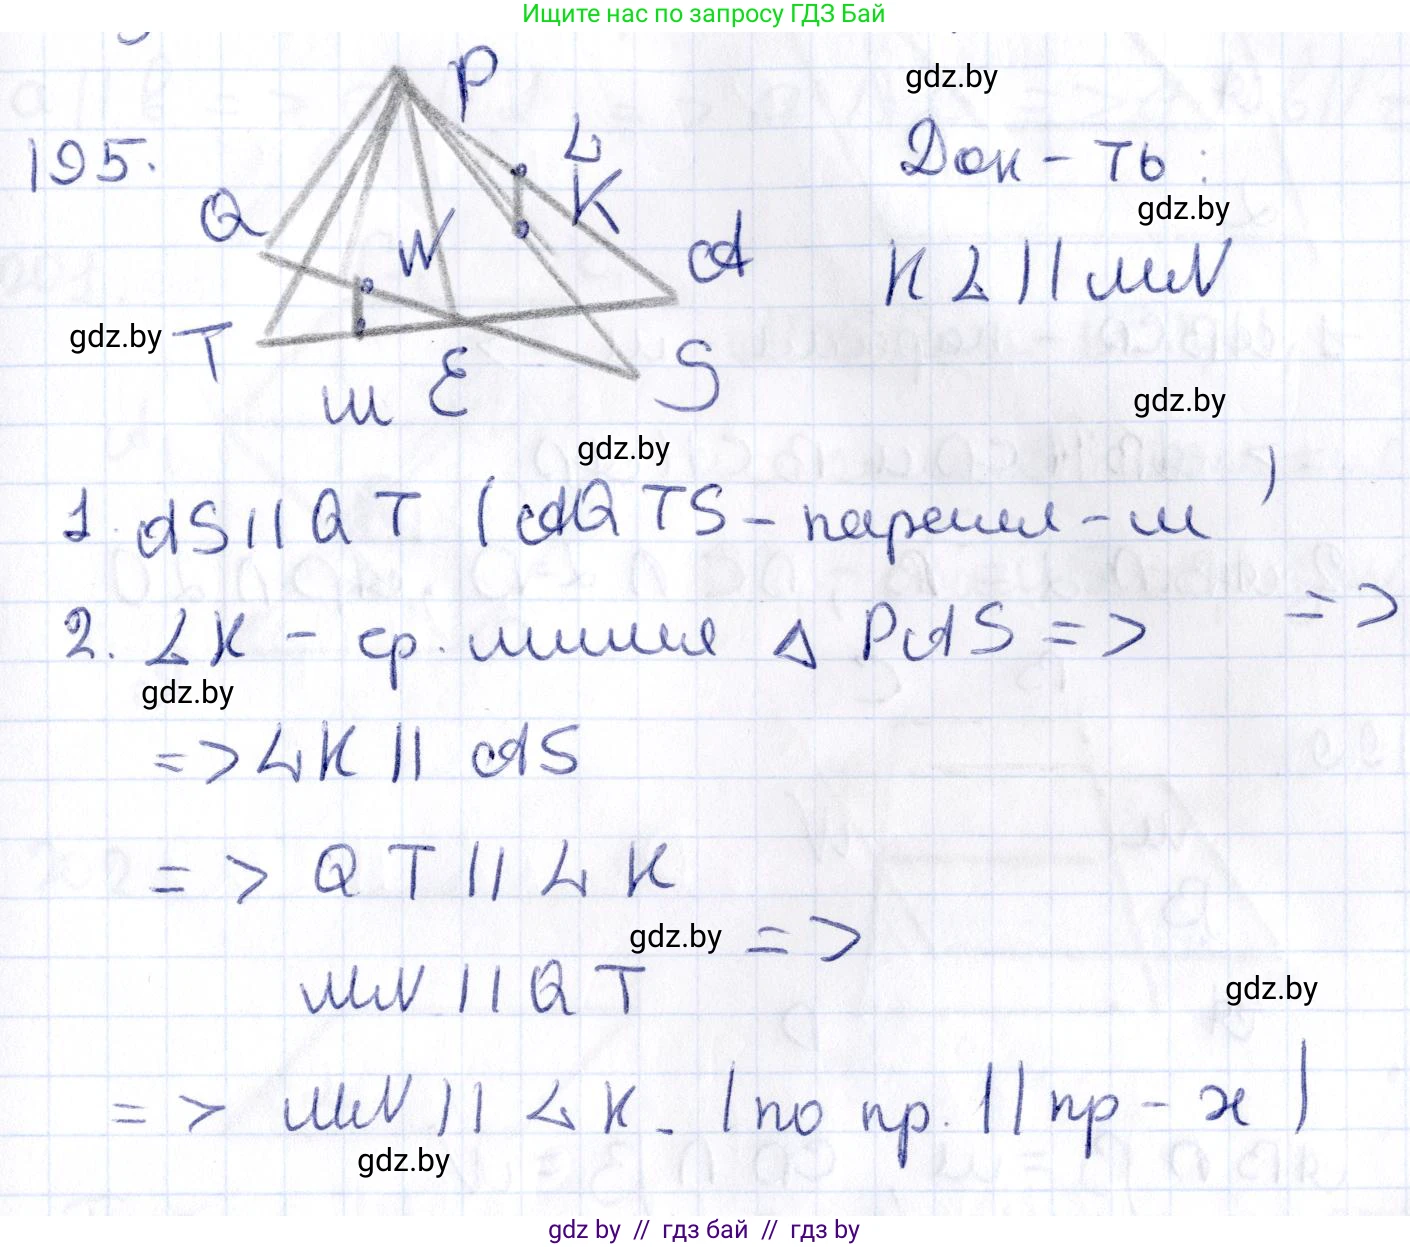 Ищите нас по запросу ГДЗ Бай
P
gdz.by
195.
L
Док-ть:
Q
K
gdz.by
N
A
KL || MN
gdz.by
T
M
E
S
gdz.by
gdz.by
1. AS || QT (AQTS - паралл-м) =>
2. LK - ср. линия △ PAS =>
gdz.by
=> LK || AS
=> QT || LK
gdz.by
=>
MN || QT
gdz.by
=> MN || LK. (по пр. || пр-х)
gdz.by
gdz.by // гдз бай // гдз by